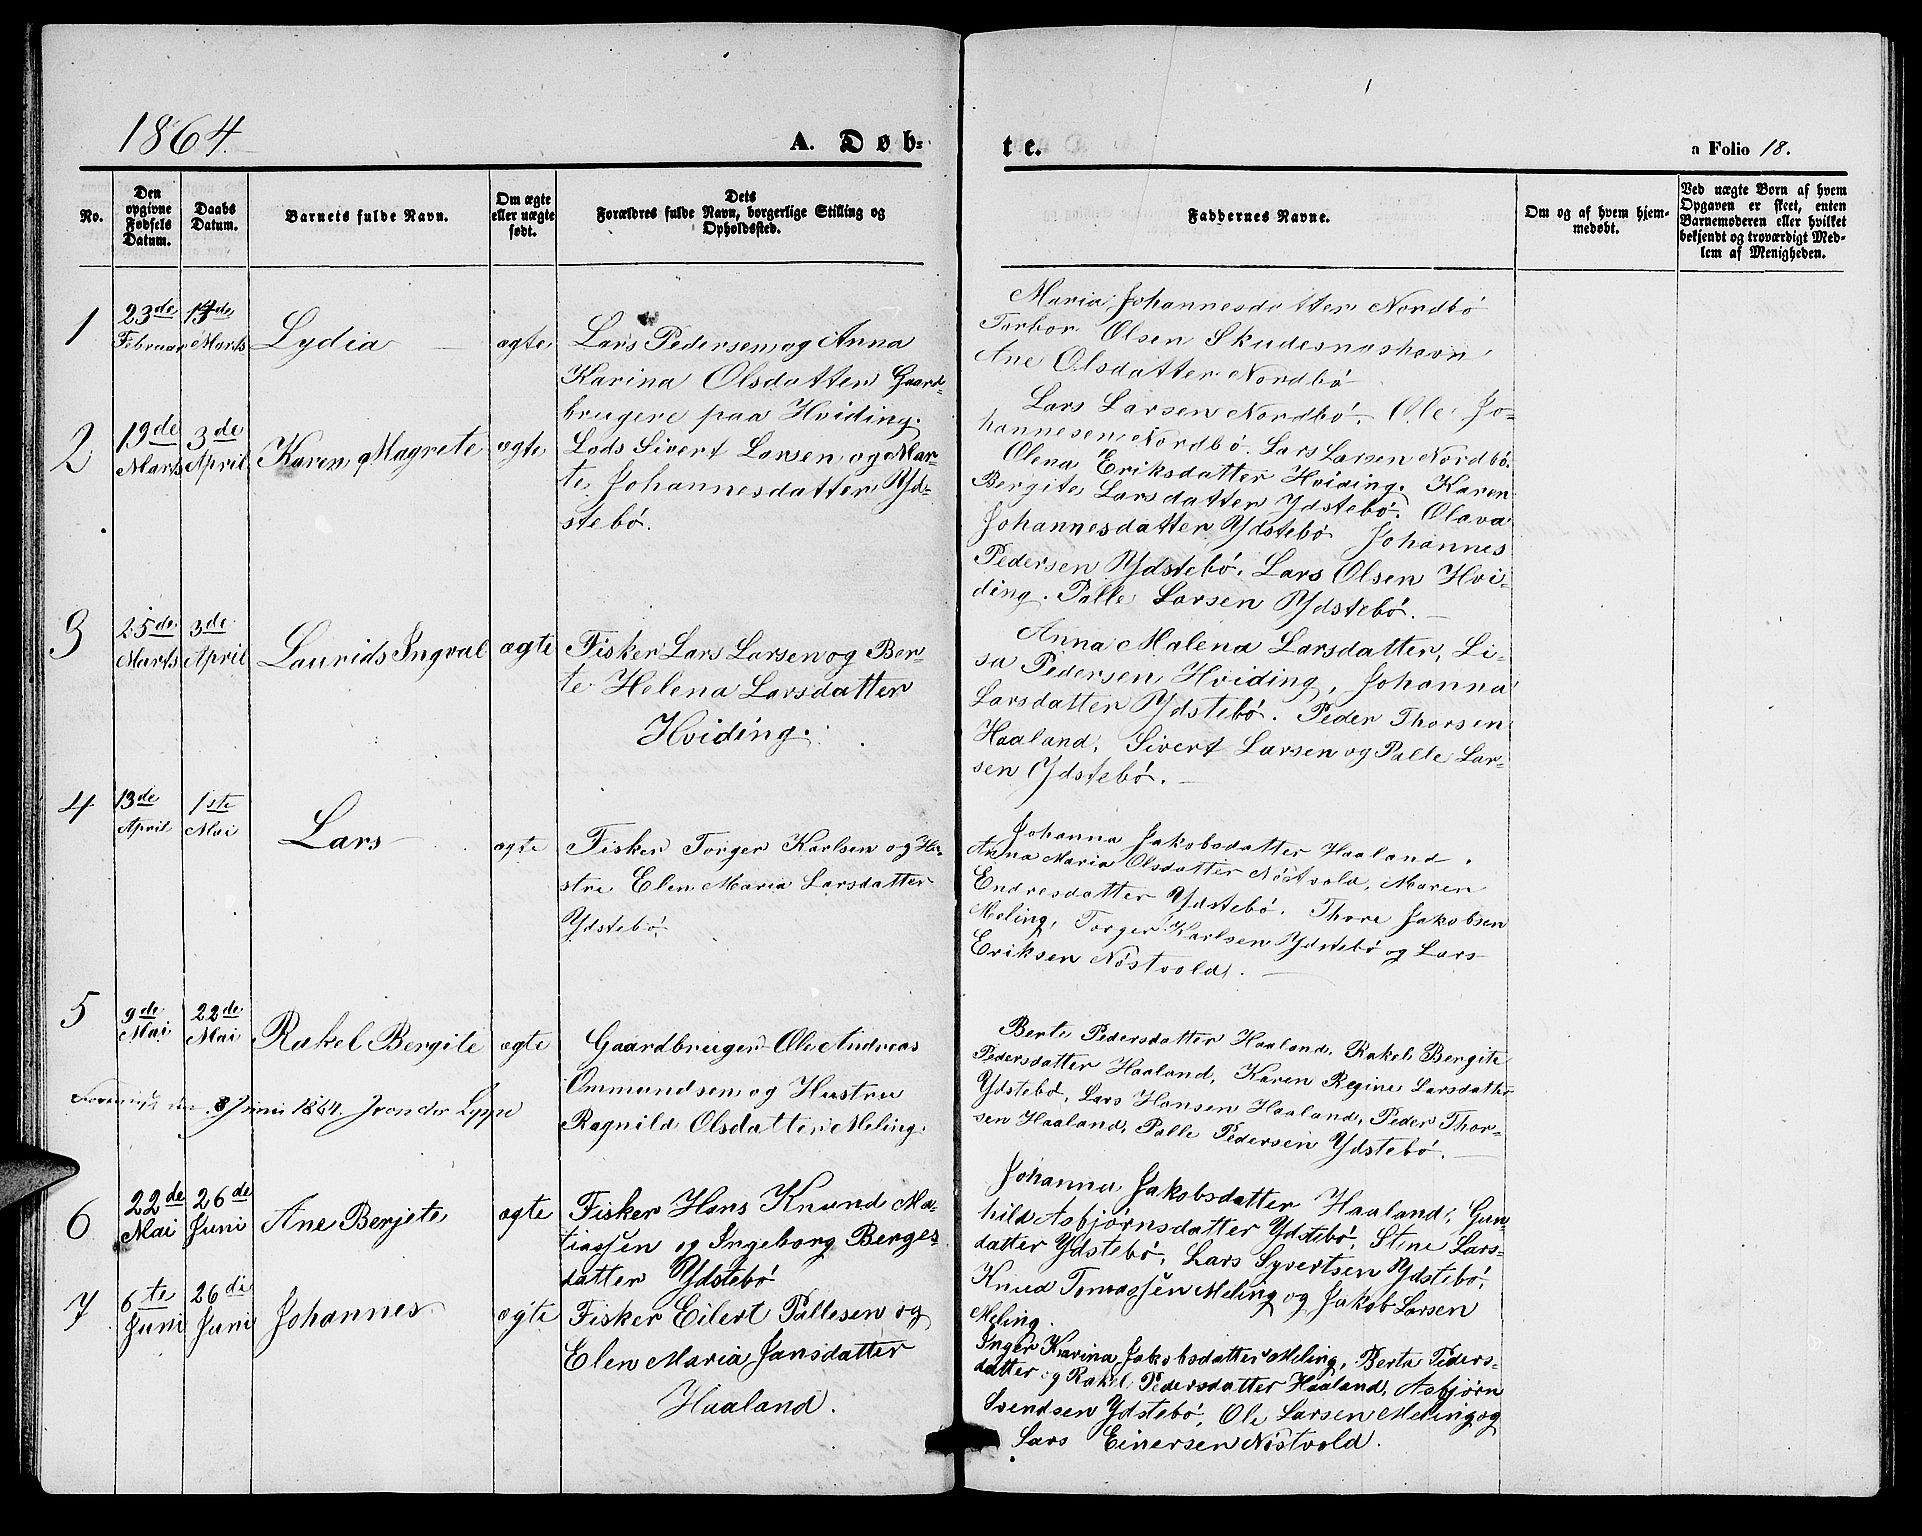 1864.
A. Døb-
te.
a Folio 18.
No.
Den
opgivne
Fødsels
Datum.
Daabs
Datum.
Barnets fulde Navn.
Om ægte
eller uægte
født.
Dets
Forældres fulde Navn, borgerlige Stilling og
Opholdssted.
Faddernes Navne.
Om og af hvem hjem-
medøbt.
Ved uægte Born af hvem
Opgaven er skeet, enten
Barnemoderen eller hvilket
bekjendt og troværdigt Med-
lem af Menigheden.
1
23de
Februar
13de
Marts
Lydia
ægte
Lars Pedersen og Anna
Karina Olsdatter Gaard-
brugere paa Hviding.
Maria Johannesdatter Nordbø
Torbor Olsen Skudesnæshavn
Ane Olsdatter Nordbø
Lars Larsen Nordbø. Ole Jo-
hannesen Nordbø. Lars Larsen Nordbø.
2
19de
Marts
3de
April
Karen Magrete
ægte
Lods Sivert Larsen og Mar-
te Johannesdatter Yd-
stebø.
Olena Eriksdatter Hviding. Karen
Bergite Larsdatter Ydstebø. Olava
Johannesdatter Ydstebø Johannes
Pedersen Ydstebø. Lars Olsen Hvi-
ding. Palle Larsen Ydstebø.
3
25de
Marts
3de
April
Laurids Ingval
ægte
Fisker Lars Larsen og Ber-
te Helena Larsdatter
Hviding.
Anna Malena Larsdatter, Li-
sa Pedersen Hviding, Johanna
Larsdatter Ydstebø. Peder Thorsen
Haaland, Sivert Larsen og Palle Lar-
sen Ydstebø.
4
13de
April
1ste
Mai
Lars
ægte
Fisker Torger Karlsen og Hu-
stru Elen Maria Larsdatter
Ydstebø.
Johanna Jakobsdatter Haaland.
Anna Maria Olsdatter Nøstvold, Maren
Endresdatter Ydstebø. Thore Jakobsen
Meling, Torger Karlsen Ydstebø og Lars
Eriksen Nøstvold.
5
9de
Mai
22de
Mai
Rakel Bergite
ægte
Gaardbruger Ole Andreas
Ommundsen og Hustru
Ragnild Olsdatter Meling.
8 Juni 1864.
Berte Pedersdatter Haaland, Rakel Bergite
Pedersdatter Haaland, Karen Regine Larsdatter
Ydstebø, Lars Hansen Haaland, Peder Thor-
sen Haaland, Palle Pedersen Ydstebø.
6
22de
Mai
26de
Juni
Ane Berjete
ægte
Fisker Hans Knund Ma-
tiassen og Ingeborg Berges-
datter Ydstebø
Johanna Jakobsdatter Haaland, Gun-
hild Asbjørnsdatter Ydstebø, Stine Lars-
datter Ydstebø, Lars Syvertsen Ydstebø,
Knud Tomassen Meling og Jakob Larsen
Meling.
7
6te
Juni
26de
Juni
Johannes
ægte
Fisker Eilert Pallesen og
Elen Maria Jansdatter
Haaland.
Inger Karina Jakobsdatter Meling, Berta Peders-
datter og Rakel Pedersdatter Haaland, Asbjørn
Svendsen Ydstebø, Ole Larsen Meling og
Lars Einersen Nøstvold.